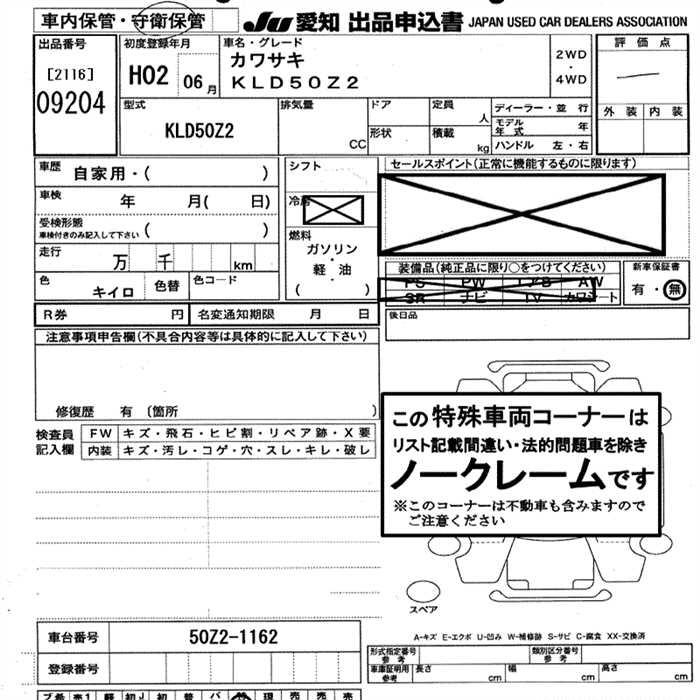 車内保管・守衛保管
JU 愛知 出品申込書 JAPAN USED CAR DEALERS ASSOCIATION
出品番号
[2116]
09204
初度登録年月
H02 06 月
車名・グレード
カワサキ
KLD50Z2
2WD
・
4WD
評価点
外装 内装
型式
KLD50Z2
排気量
CC
ドア
形状
定員
人
積載
kg
ディーラー・並行
モデル年式 年
ハンドル 左・右
車歴
自家用・( )
車検
年 月( 日)
受検形態
車検付きのみ記入して下さい ( )
走行
万 千 km
色
キイロ
色替
色コード
シフト
冷房
燃料
ガソリン
・
軽・油
( )
セールスポイント(正常に機能するものに限ります)
装備品(純正品に限り○をつけてください)
PS PW エアB AW
SR ナビ TV カワシート
新車保証書
有・無
R券 円
名変通知期限 月 日
後日品
注意事項申告欄(不具合内容等は具体的に記入して下さい)
修復歴 有 〔箇所 〕
検査員
記入欄
FW キズ・飛石・ヒビ割・リペア跡・X要
内装 キズ・汚レ・コゲ・穴・スレ・キレ・破レ
この特殊車両コーナーは
リスト記載間違い・法的問題車を除き
ノークレームです
※このコーナーは不動車も含みますので
ご注意ください
スペア
A-キズ E-エクボ U-凹み W-補修跡 S-サビ C-腐食 XX-交換済
車台番号
50Z2-1162
登録番号
形式指定番号
参考
類別区分番号
参考
車庫証明用
参考
長さ cm
幅 cm
高さ cm